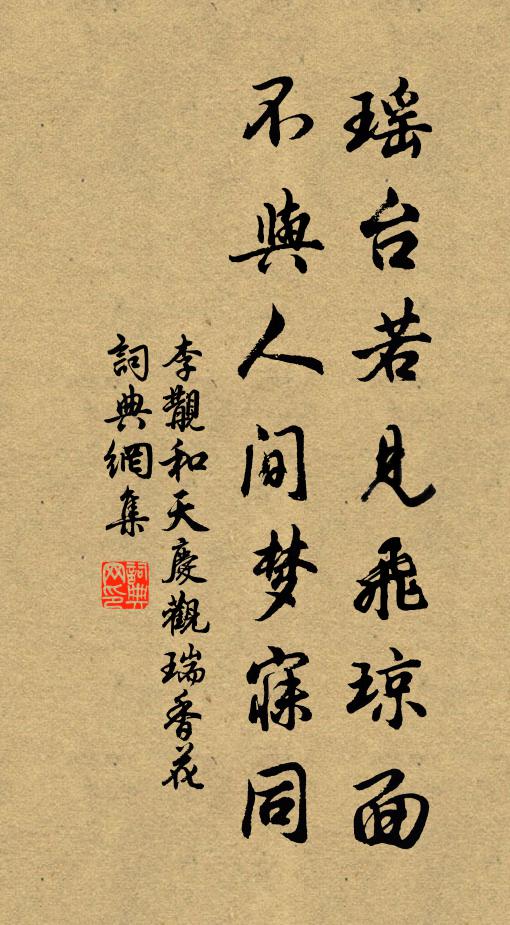 瑶台若见飛琼面
不與人间梦寐同
李覯和天慶觀瑞香花
詞典網集
詞典网印